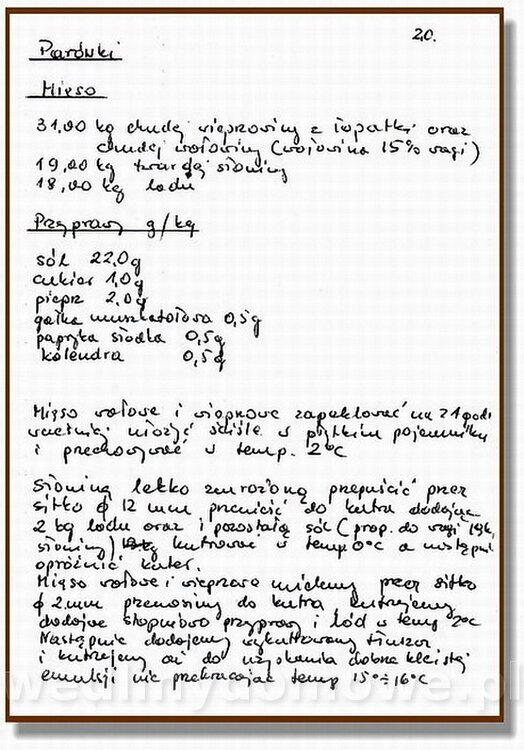 20.
Parówki
Mięso
31,00 kg chudej wieprzowiny z łopatki oraz
chudej wołowiny (wołowina 15% wagi)
19,00 kg twardej słoniny
18,00 kg lodu
Przyprawy g/kg
sól 22,0g
cukier 1,0g
pieprz 2,0g
gałka muszkatołowa 0,5g
papryka słodka 0,5g
kolendra 0,5g
Mięso wołowe i wieprzowe zapeklować na 24 godz
wcześniej ułożyć ściśle w płytkim pojemniku
i przechowywać w temp. 2°C
Słoninę lekko zmrożoną przepuścić przez
sitko φ 12 mm przenieść do kutra dodając
2 kg lodu oraz i pozostałą sól (prop. do wagi 19 kg
słoniny) kutrować w temp 0°C a następnie
opróżnić kuter.
Mięso wołowe i wieprzowe mielemy przez sitko
φ 2mm przenosimy do kutra kutrujemy
dodając stopniowo przyprawy i lód w temp 2°C
Następnie dodajemy wykutrowany tłuszcz
i kutrujemy aż do uzyskania dobrze kleistej
emulsji nie przekraczając temp 15°÷16°C
wedlinydomowe.pl